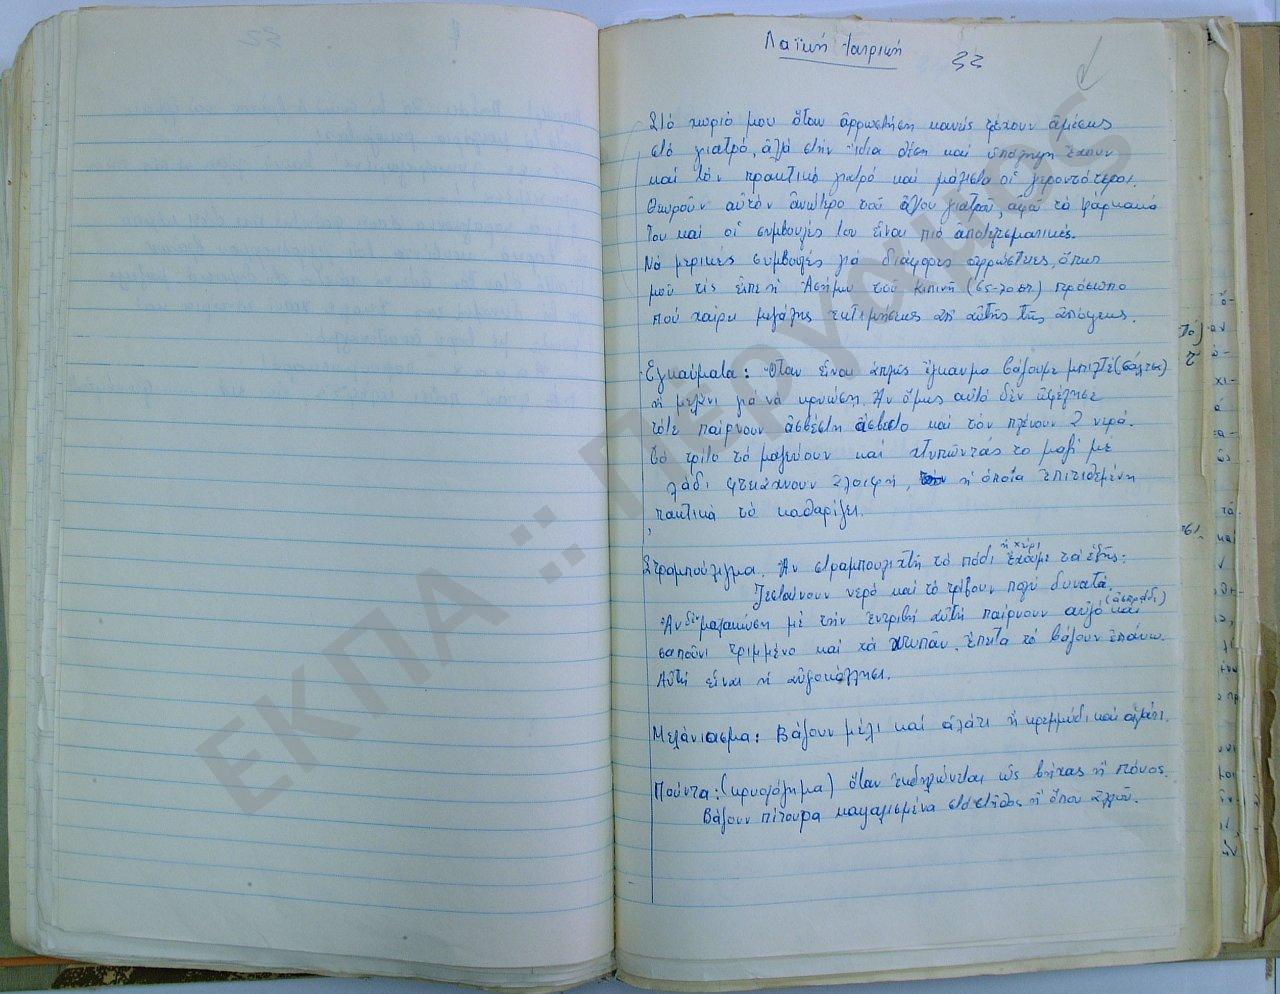 Λαϊκή Ἰατρική 32
Στό χωριό μου ὅταν ἀρρωστήση κανείς τρέχουν ἀμέσως
στό γιατρό, ἀλλά στήν ἴδια θέση καί ὑπόληψη ἔχουν
καί τόν πρακτικό γιατρό καί μάλιστα οἱ γεροντότεροι.
Θεωροῦν αὐτόν ἀνώτερο τοῦ ἄλλου γιατροῦ, ἀφοῦ τά φάρμακά
του καί οἱ συμβουλές του εἶναι πιό ἀποτελεσματικές.
Νά μερικές συμβουλές γιά διάφορες ἀρρώστιες, ὅπως
μοῦ τίς εἶπε ἡ Ἀσήμω τοῦ Κιπινῆ (65-70 ἐτ) πρόσωπο
πού χαίρει μεγάλης ἐκτιμήσεως ἀπ' αὐτῆς τῆς ἀπόψεως.
Ἐγκαύματα: Ὅταν εἶναι ἁπλῶς ἔγκαυμα βάζουμε μπελτέ (σάλτσα)
ἤ μελάνι γιά νά κρυώση. Ἄν ὅμως αὐτό δέν ὠφέλησε
τότε παίρνουν ἀσβέστη ἄσβεστο καί τόν πλένουν 2 νερά.
Τό τρίτο τό μαζεύουν καί χτυπώντάς το μαζί μέ
λάδι φτειάχνουν ἀλοιφή, ἡ ὁποία ἐπιτιθεμένη
τακτικά τό καθαρίζει.
Στραμπούλιγμα. Ἄν στραμπουλιχτῆ τό πόδι ἤ χέρι ἔχουμε τά ἑξῆς:
Ζεσταίνουν νερό καί τό τρίβουν πολύ δυνατά.
Ἄν δέν μαλακώση μέ τήν ἐντριβή αὐτή παίρνουν αὐγό (ἀσπράδι) καί
σαπούνι τριμμένο καί τά χτυπᾶν. Ἔπειτα τό βάζουν ἐπάνω.
Αὐτή εἶναι ἡ αὐγοκόλληση.
Μελάνιασμα: Βάζουν μέλι καί ἁλάτι ἤ κρεμμύδι καί ἁλάτι.
Πούντα: (κρυολόγημα) ὅταν ἐκδηλώνεται ὡς βήχας ἤ πόνος.
Βάζουν πίτουρα καψαλισμένα στό στῆθος ἤ ὅπου ἀλλοῦ.
ΕΚΠΑ :: ΠΕΡΓΑΜΟΣ